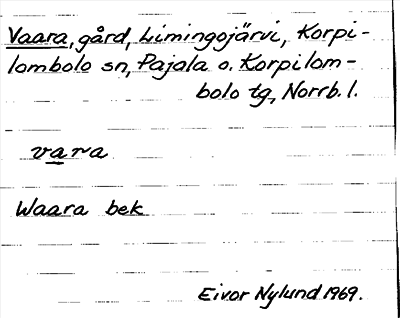 Vaara, gård, Limingojärvi, Korpi-
lombolo sn, Pajala o. Korpilom-
bolo tg, Norrb. l.
vara
Waara bek
Eivor Nylund 1969.